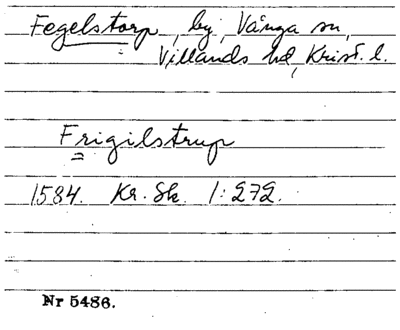 Fegelstorp, by, Vånga sn,
Villands hd, Krist. l.
Frigilstrup
1584. Kr. Sk. 1:272.
Nr 5486.